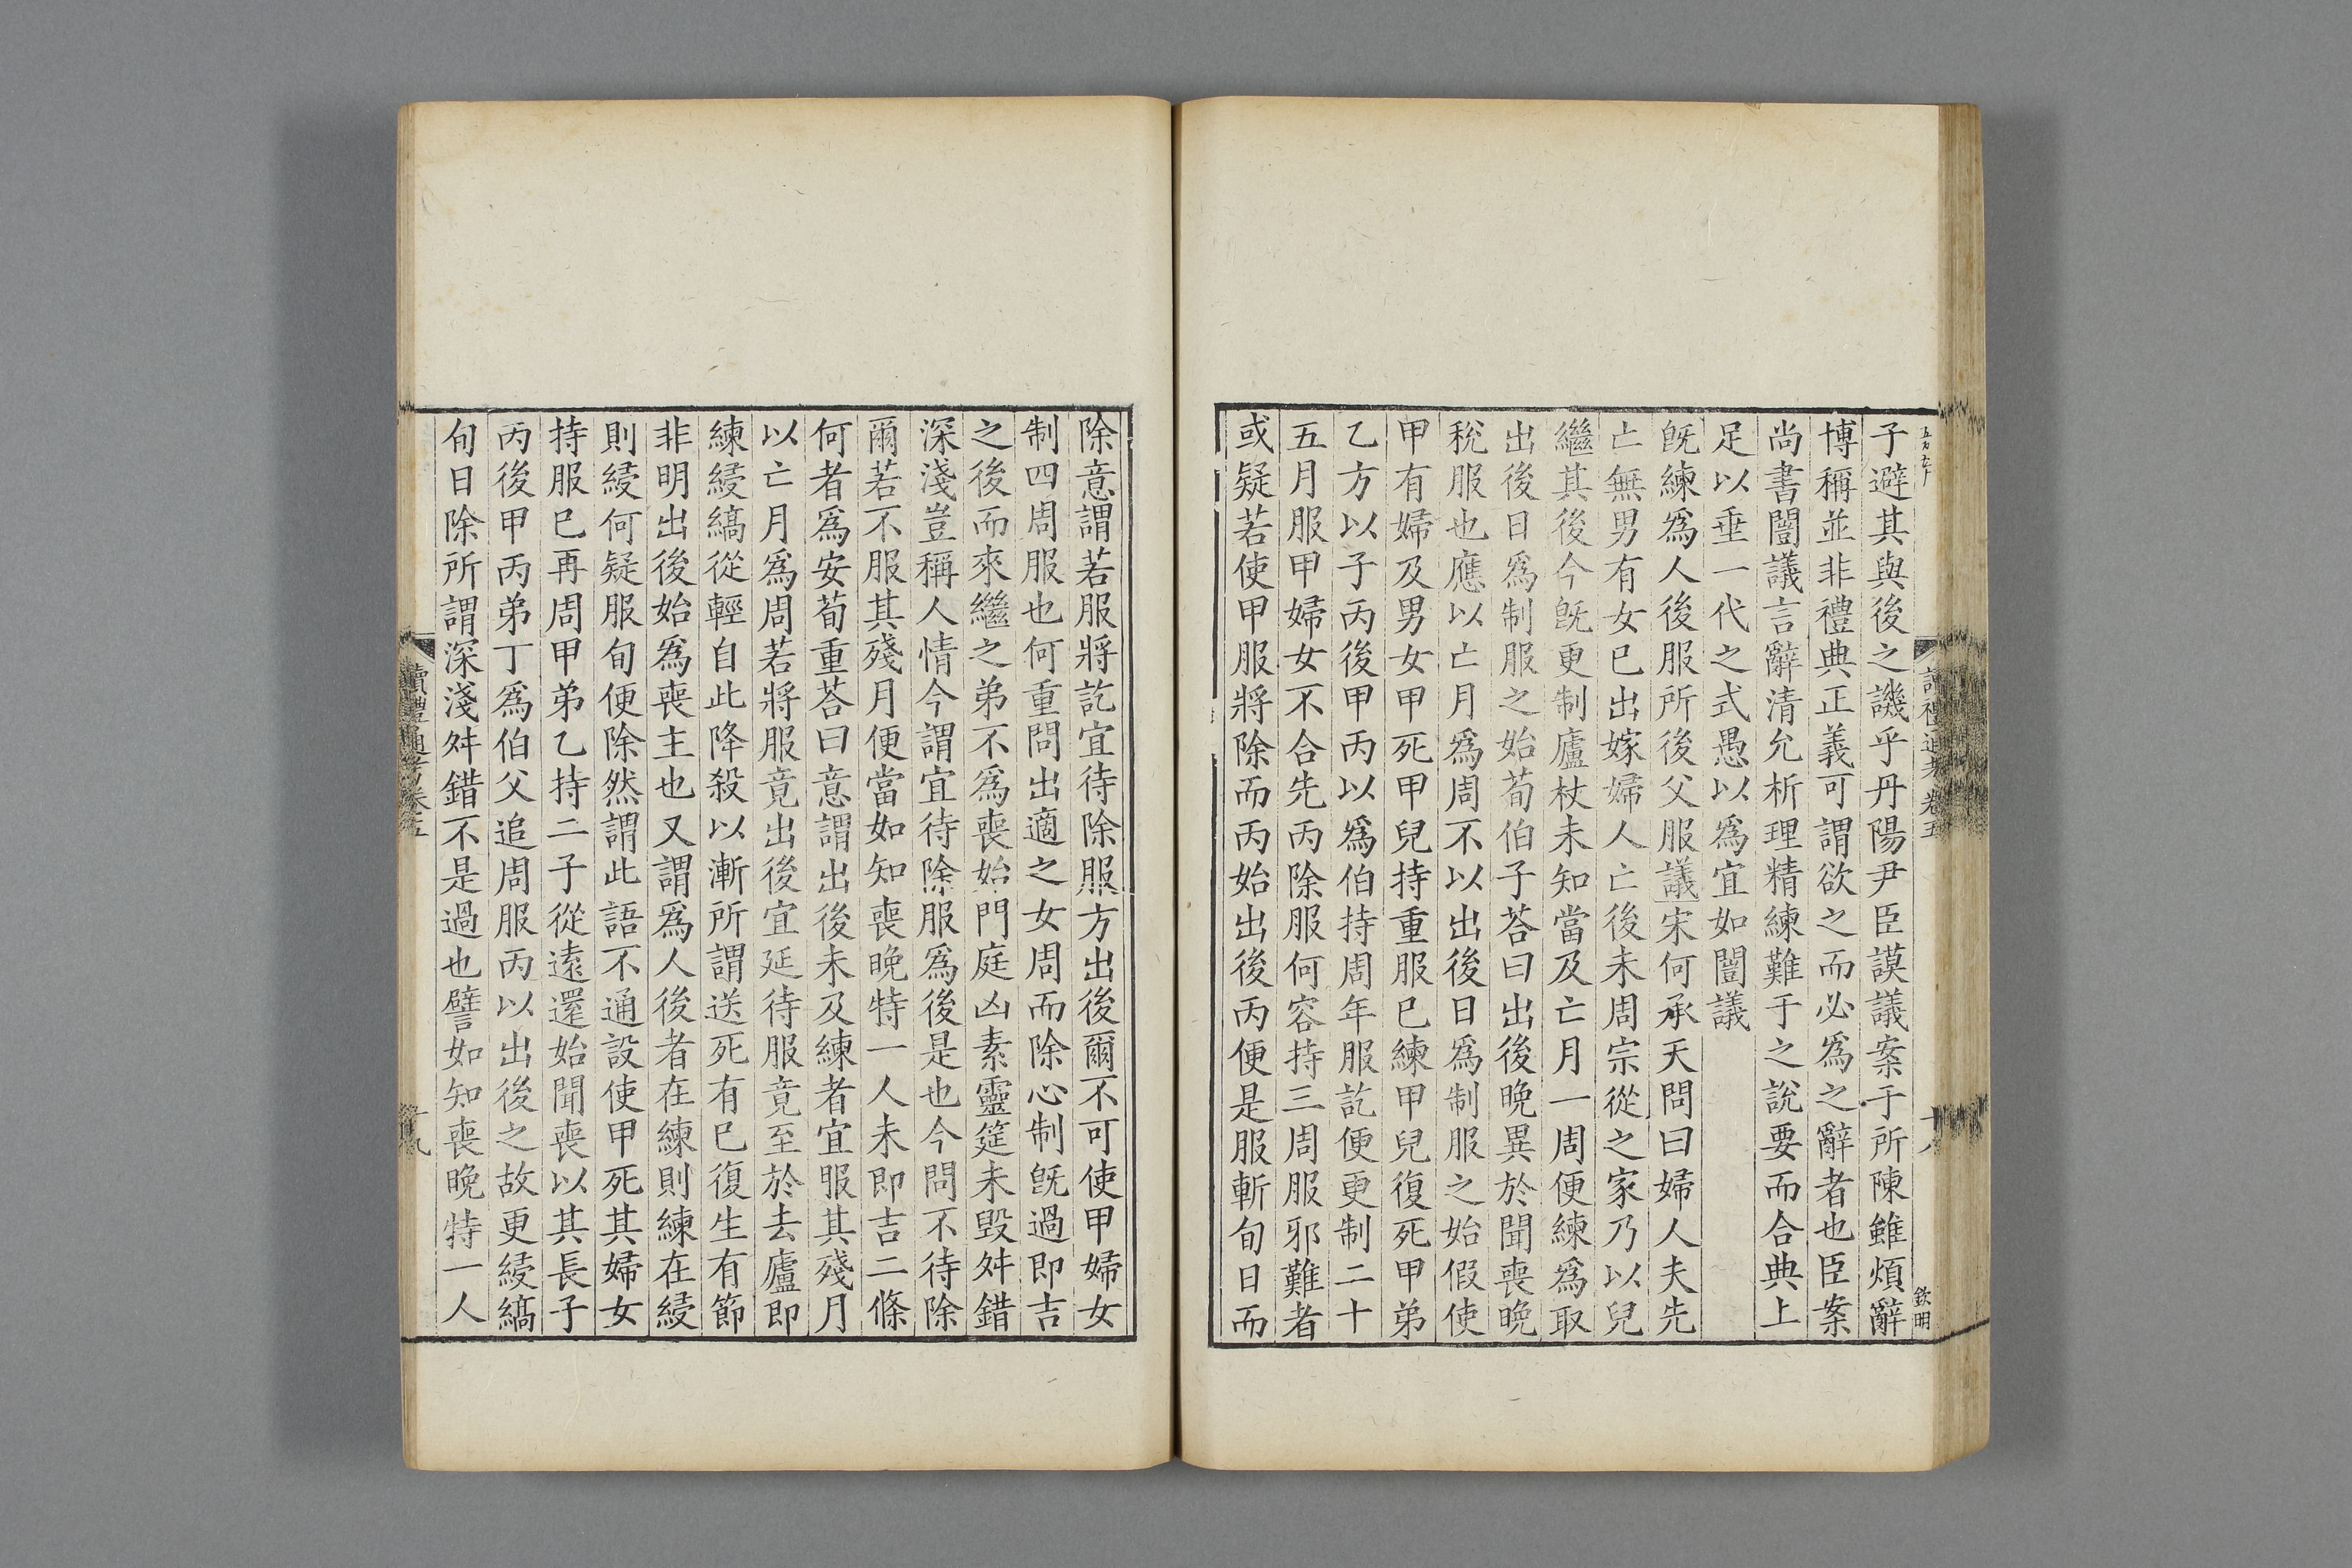 讀禮通考卷五
十八
欽明
子避其與後之譏乎丹陽尹臣謨議案于所陳雖煩辭
博稱並非禮典正義可謂欲之而必爲之辭者也臣案
尚書闓議言辭清允析理精練難于之說要而合典上
足以垂一代之式愚以爲宜如闓議
旣練爲人後服所後父服議宋何承天問曰婦人夫先
亡無男有女巳出嫁婦人亡後未周宗從之家乃以兒
繼其後今旣更制廬杖未知當及亡月一周便練爲取
出後日爲制服之始荀伯子荅曰出後晚異於聞喪晚
稅服也應以亡月爲周不以出後日爲制服之始假使
甲有婦及男女甲死甲兒持重服巳練甲兒復死甲弟
乙方以子丙後甲丙以爲伯持周年服訖便更制二十
五月服甲婦女不合先丙除服何容持三周服邪難者
或疑若使甲服將除而丙始出後丙便是服斬旬日而
除意謂若服將訖宜待除服方出後爾不可使甲婦女
制四周服也何重問出適之女周而除心制旣過即吉
之後而來繼之弟不爲喪始門庭凶素靈筵未毁舛錯
深淺豈稱人情今謂宜待除服爲後是也今問不待除
爾若不服其殘月便當如知喪晚特一人未即吉二條
何者爲安荀重荅曰意謂出後未及練者宜服其殘月
以亡月爲周若將服竟出後宜延待服竟至於去廬即
練綅縞從輕自此降殺以漸所謂送死有巳復生有節
非明出後始爲喪主也又謂爲人後者在練則練在綅
則綅何疑服旬便除然謂此語不通設使甲死其婦女
持服巳再周甲弟乙持二子從遠還始聞喪以其長子
丙後甲丙弟丁爲伯父追周服丙以出後之故更綅縞
旬日除所謂深淺舛錯不是過也譬如知喪晚特一人
讀禮通考卷五
十九